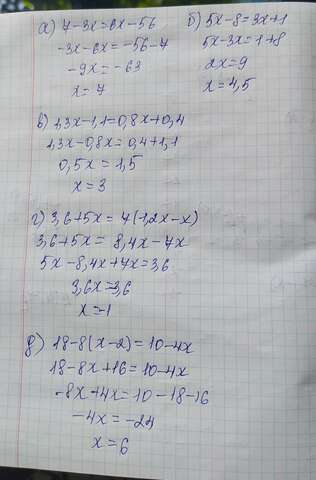 а) 7-3x=6x-56
-3x-6x=-56-7
-9x=-63
x=7
б) 5x-8=3x+1
5x-3x=1+8
2x=9
x=4,5
в) 1,3x-1,1=0,8x+0,4
1,3x-0,8x=0,4+1,1
0,5x=1,5
x=3
г) 3,6+5x=7(1,2x-x)
3,6+5x=8,4x-7x
5x-8,4x+7x=3,6
3,6x=3,6
x=-1
д) 18-8(x-2)=10-4x
18-8x+16=10-4x
-8x+4x=10-18-16
-4x=-24
x=6